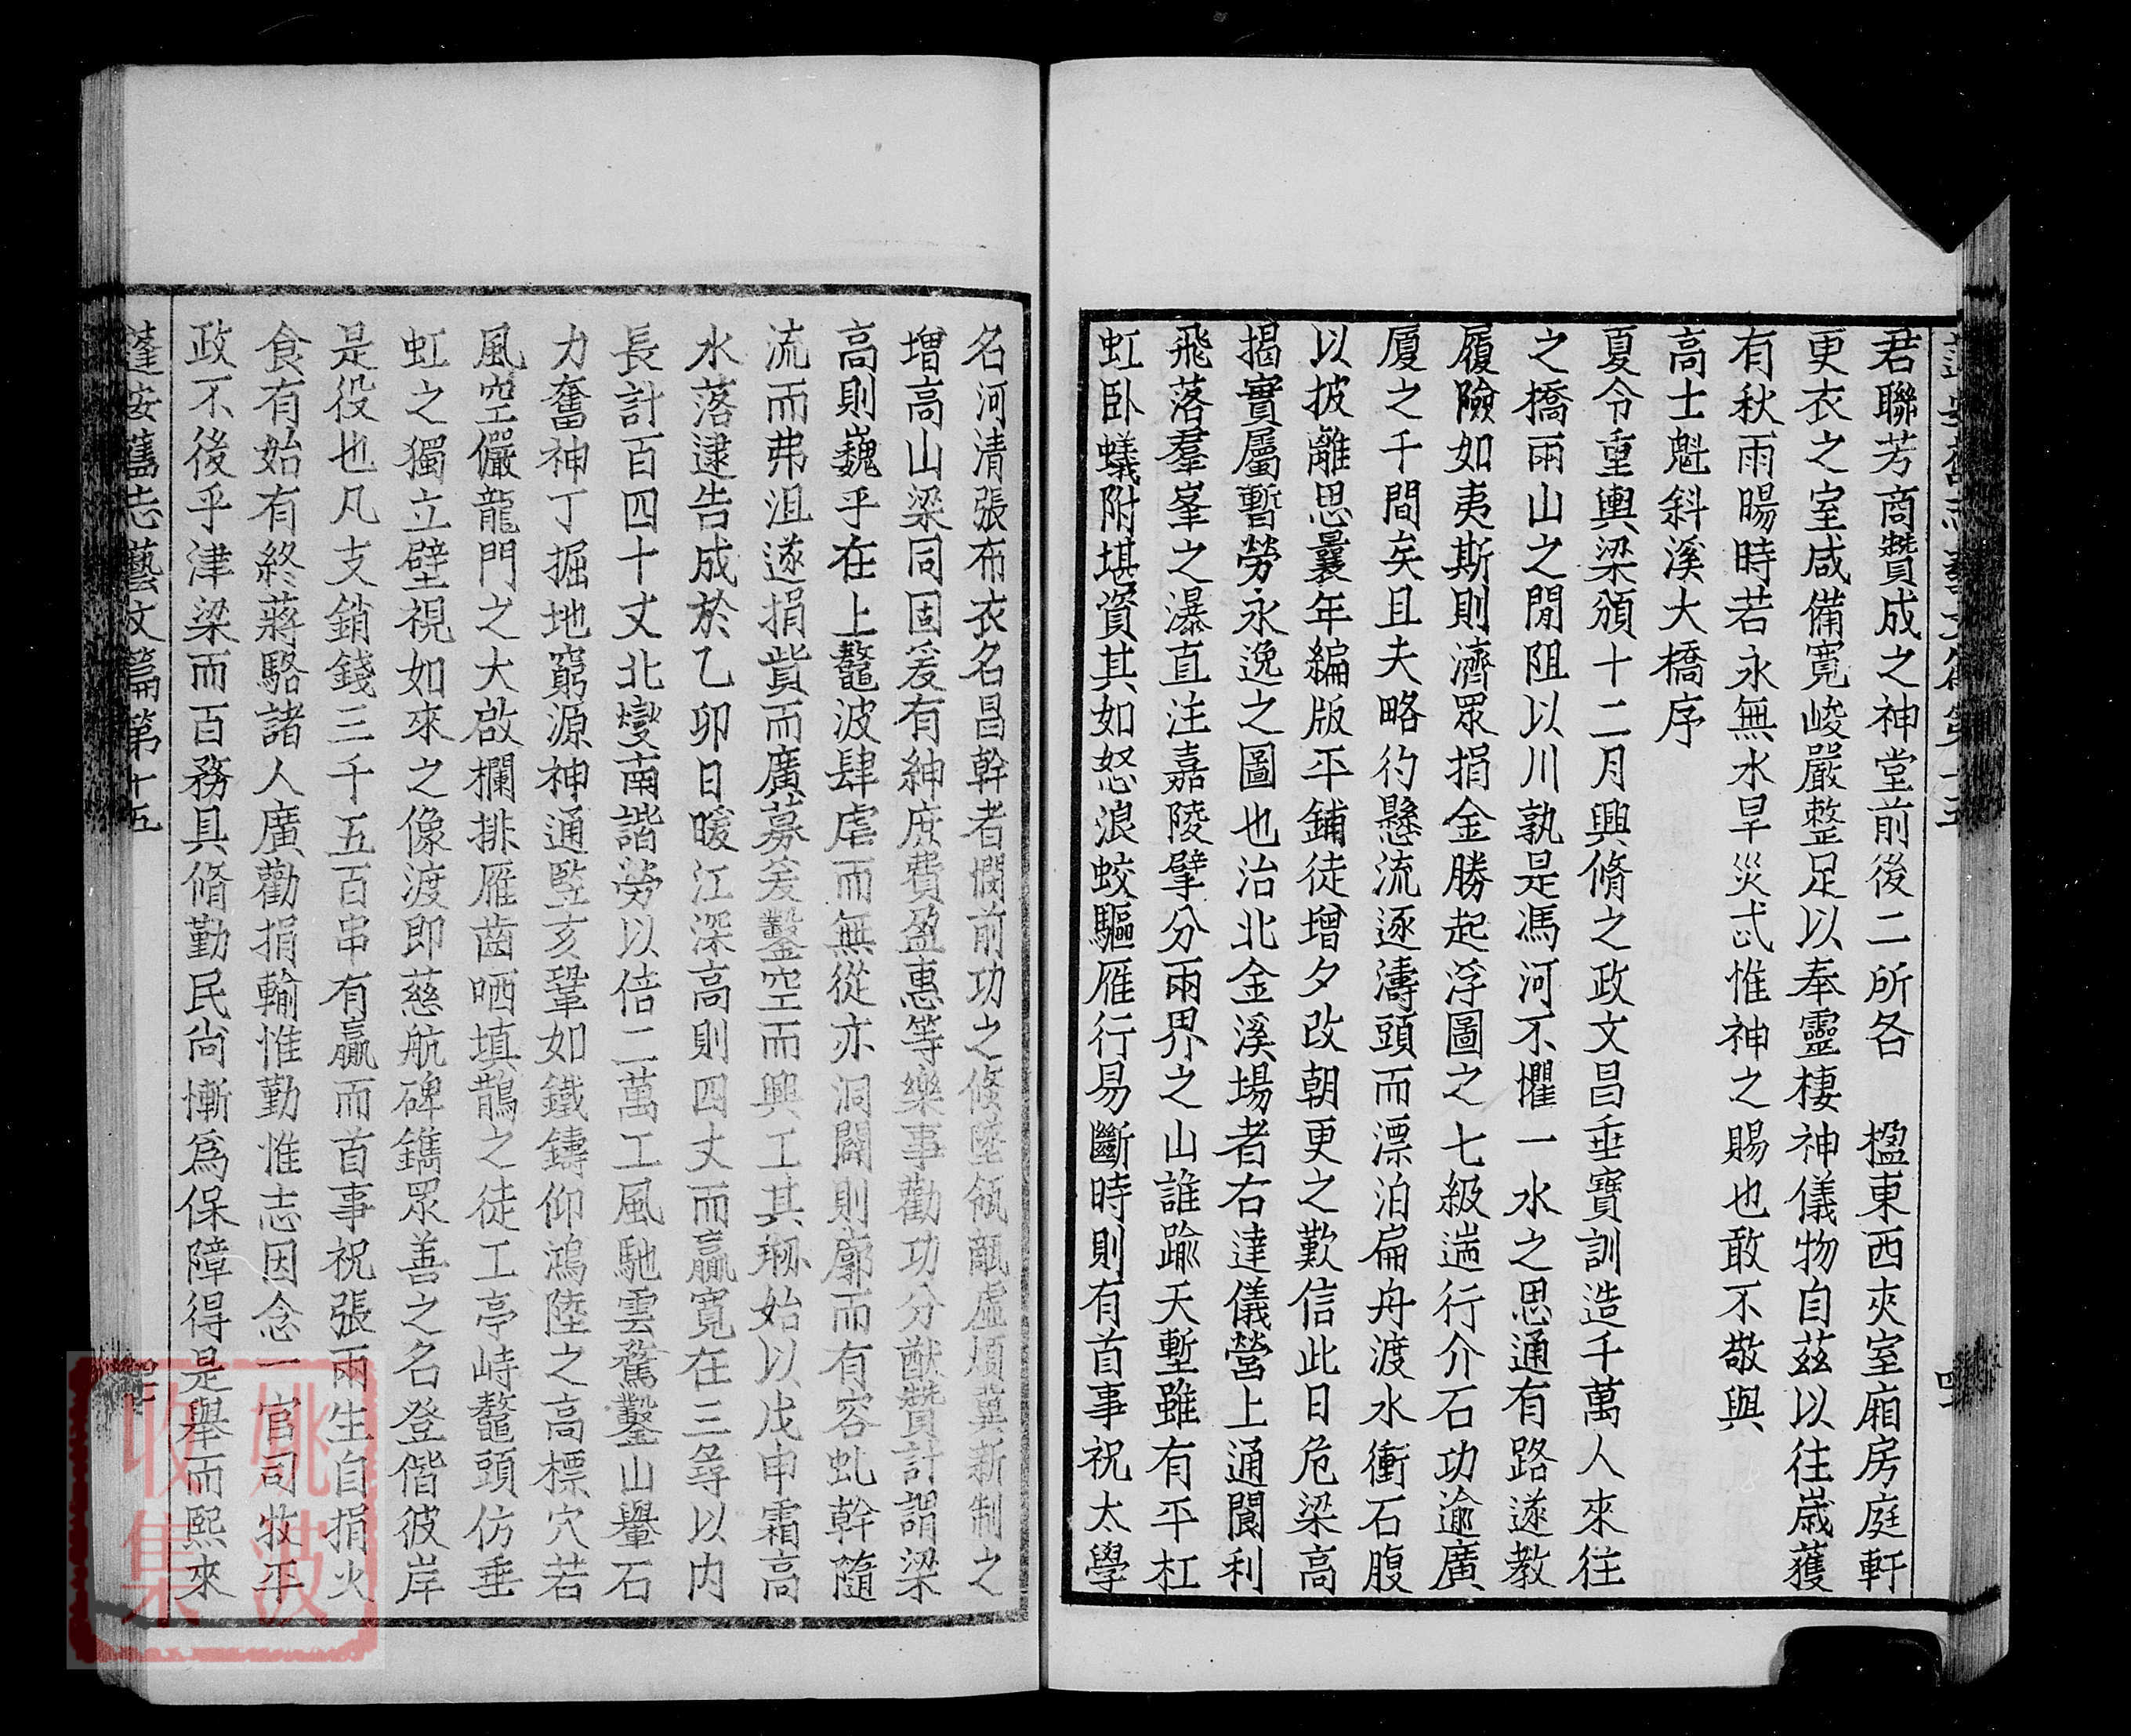 君聯芳商贊成之神堂前後二所各　楹東西夾室廂房庭軒
更衣之室咸備寬峻嚴整足以奉靈棲神儀物自茲以往歲獲
有秋雨暘時若永無水旱災忒惟神之賜也敢不敬與
高士魁斜溪大橋序
夏令重輿梁頒十二月興脩之政文昌垂寶訓造千萬人來往
之橋兩山之間阻以川孰是馮河不懼一水之思通有路遂教
履險如夷斯則濟眾捐金勝起浮圖之七級遄行介石功逾廣
廈之千間矣且夫略彴懸流逐濤頭而漂泊扁舟渡水衝石腹
以披離思曩年編版平鋪徒增夕改朝更之歎信此日危梁高
揭實屬暫勞永逸之圖也治北金溪場者右達儀營上通閬利
飛落羣峯之瀑直注嘉陵擘分兩界之山誰踰天塹雖有平杠
虹臥蟻附堪資其如怒浪蛟驅雁行易斷時則有首事祝太學
名河清張布衣名昌幹者憫前功之倏墜瓴甋虛填冀新制之
增高山梁同固爰有紳庶費盈惠等樂事勸功分猷贊計謂梁
高則巍乎在上鼇波肆虐而無從亦洞闢則廓而有容虬幹隨
流而弗沮遂捐貲而廣募爰鑿空而興工其剏始以戊申霜高
水落逮告成於乙卯日暖江深高則四丈而贏寬在三尋以內
長計百四十丈北燮南諧勞以倍二萬工風馳雲騖鑿山轝石
力奮神丁掘地窮源神通豎亥鞏如鐵鑄仰鴻陸之高標穴若
風空儼龍門之大啟欄排雁齒哂填鵲之徒工亭峙鼇頭仿垂
虹之獨立壁視如來之像渡即慈航碑鐫眾善之名登偕彼岸
是役也凡支銷錢三千五百串有贏而首事祝張兩生自捐火
食有始有終蔣駱諸人廣勸捐輸惟勤惟志因念一官司牧平
政不後乎津梁而百務具脩勤民尚慚為保障得是舉而熙來
蓬安舊志藝文篇第十五
姚波收集